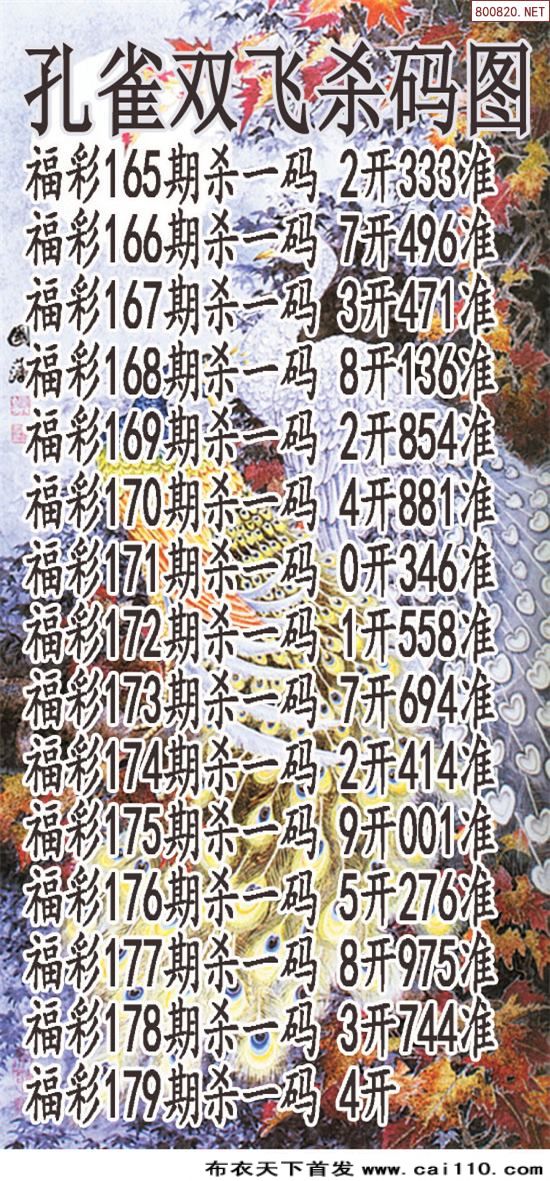 800820.NET
孔雀双飞杀码图
福彩165期杀一码 2开333准
福彩166期杀一码 7开496准
福彩167期杀一码 3开471准
福彩168期杀一码 8开136准
福彩169期杀一码 2开854准
福彩170期杀一码 4开881准
福彩171期杀一码 0开346准
福彩172期杀一码 1开558准
福彩173期杀一码 7开694准
福彩174期杀一码 2开414准
福彩175期杀一码 9开001准
福彩176期杀一码 5开276准
福彩177期杀一码 8开975准
福彩178期杀一码 3开744准
福彩179期杀一码 4开
布衣天下首发 www.cai110.com